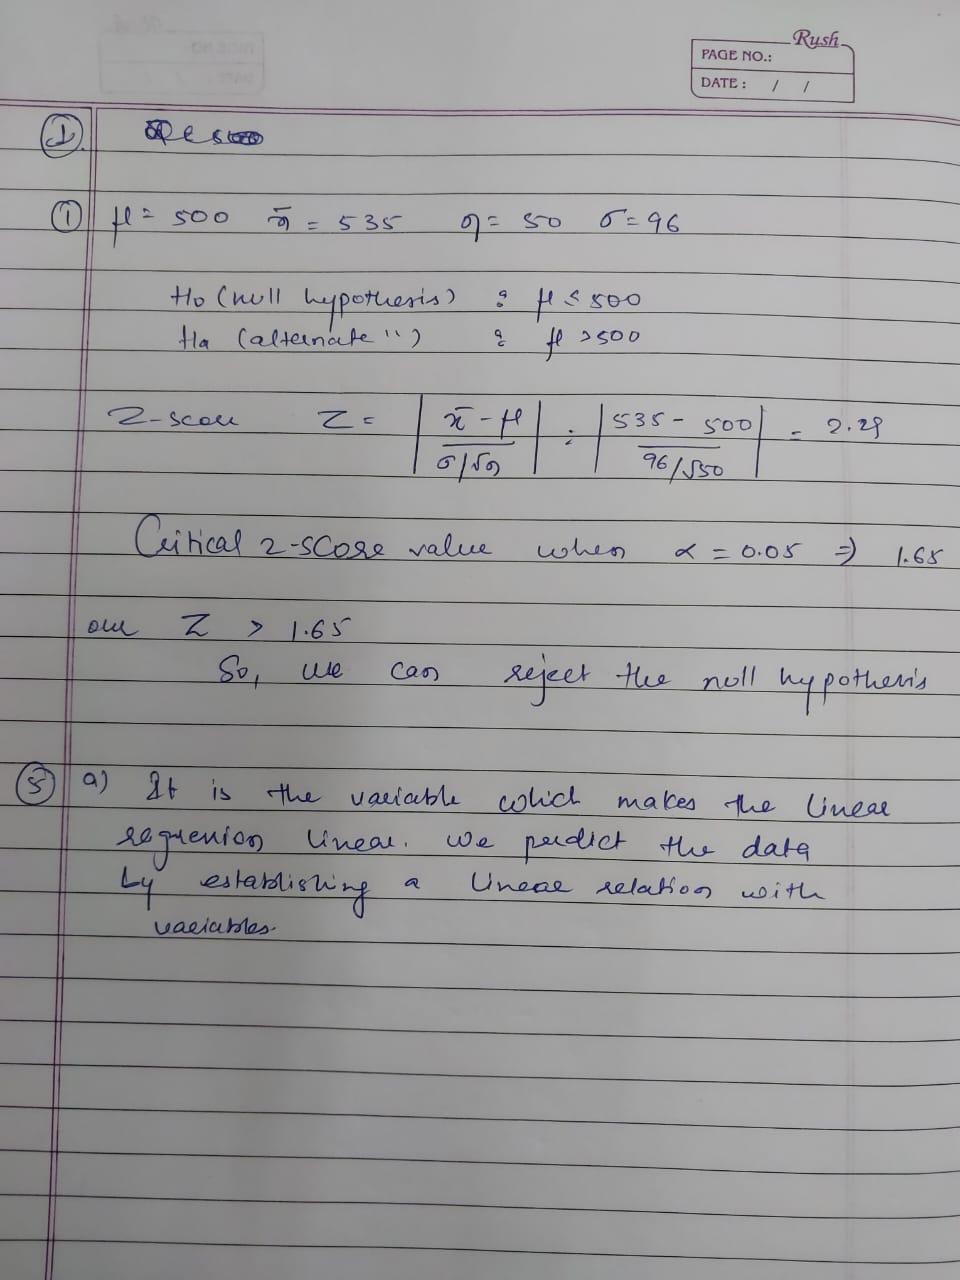 Rush
PAGE NO.:
DATE : / /
I.
① μ = 500 x̄ = 535 n = 50 σ = 96
Ho (null hypothesis) : μ ≤ 500
Ha (alternate '' ) : μ > 500
Z-score Z = | x̄ - μ / σ/√n | = | 535 - 500 / 96/√50 | = 2.29
Critical z-score value when α = 0.05 ⇒ 1.65
our Z > 1.65
So, we can reject the null hypothesis
⑤ a) It is the variable which makes the linear
regression linear. we predict the data
by establishing a linear relation with
variables.